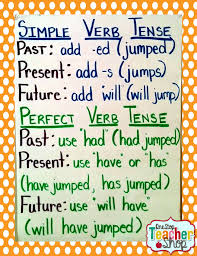 SIMPLE VERB TENSE
PAST: add -ed (jumped)
PRESENT: add -s (jumps)
FUTURE: add "will" (will jump)
PERFECT VERB TENSE
PAST: use "had" (had jumped)
PRESENT: use "have" or "has"
(have jumped, has jumped)
FUTURE: use "will have"
(will have jumped)
One Stop
Teacher
Shop